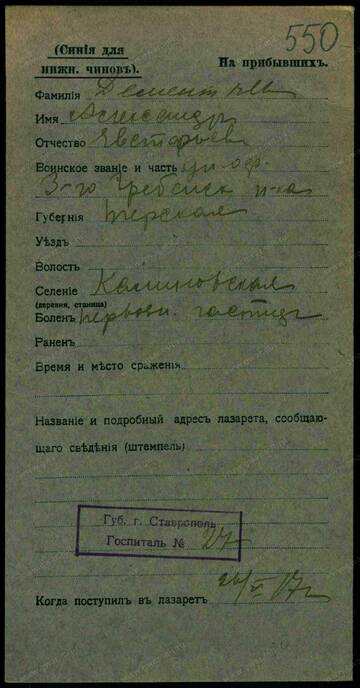 550
(Синія для
нижн. чиновъ).
На прибывшихъ.
Фамилія Дементьев
Имя Александр
Отчество Евстафьев
Воинское званіе и часть ун. оф.
3-го Гребенск п-ка
Губернія Терская
Уѣздъ
Волость
Селеніе Калиновская
(деревня, станица)
Боленъ первон. гастрит
Раненъ
Время и мѣсто сраженія
Названіе и подробный адресъ лазарета, сообщаю-
щаго свѣдѣнія (штемпель)
Губ. г. Ставрополь
Госпиталь № 27
Когда поступилъ въ лазаретъ 26/V 17 г